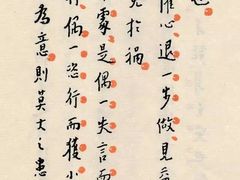 也
惟心退一步做見
免於禍
處是偶一失言而
偶一恣行而獲小
為意則莫大之患